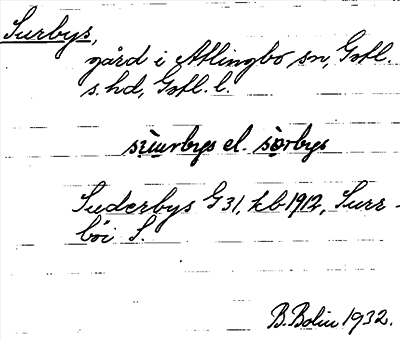 Surbys,
gård i Atlingbo sn, Gotl.
s. hd, Gotl. l.
sùurbys el. sòrbys
Suderbys G 31, kb 1912, Surr-
böi S.
B. Bolin 1932.